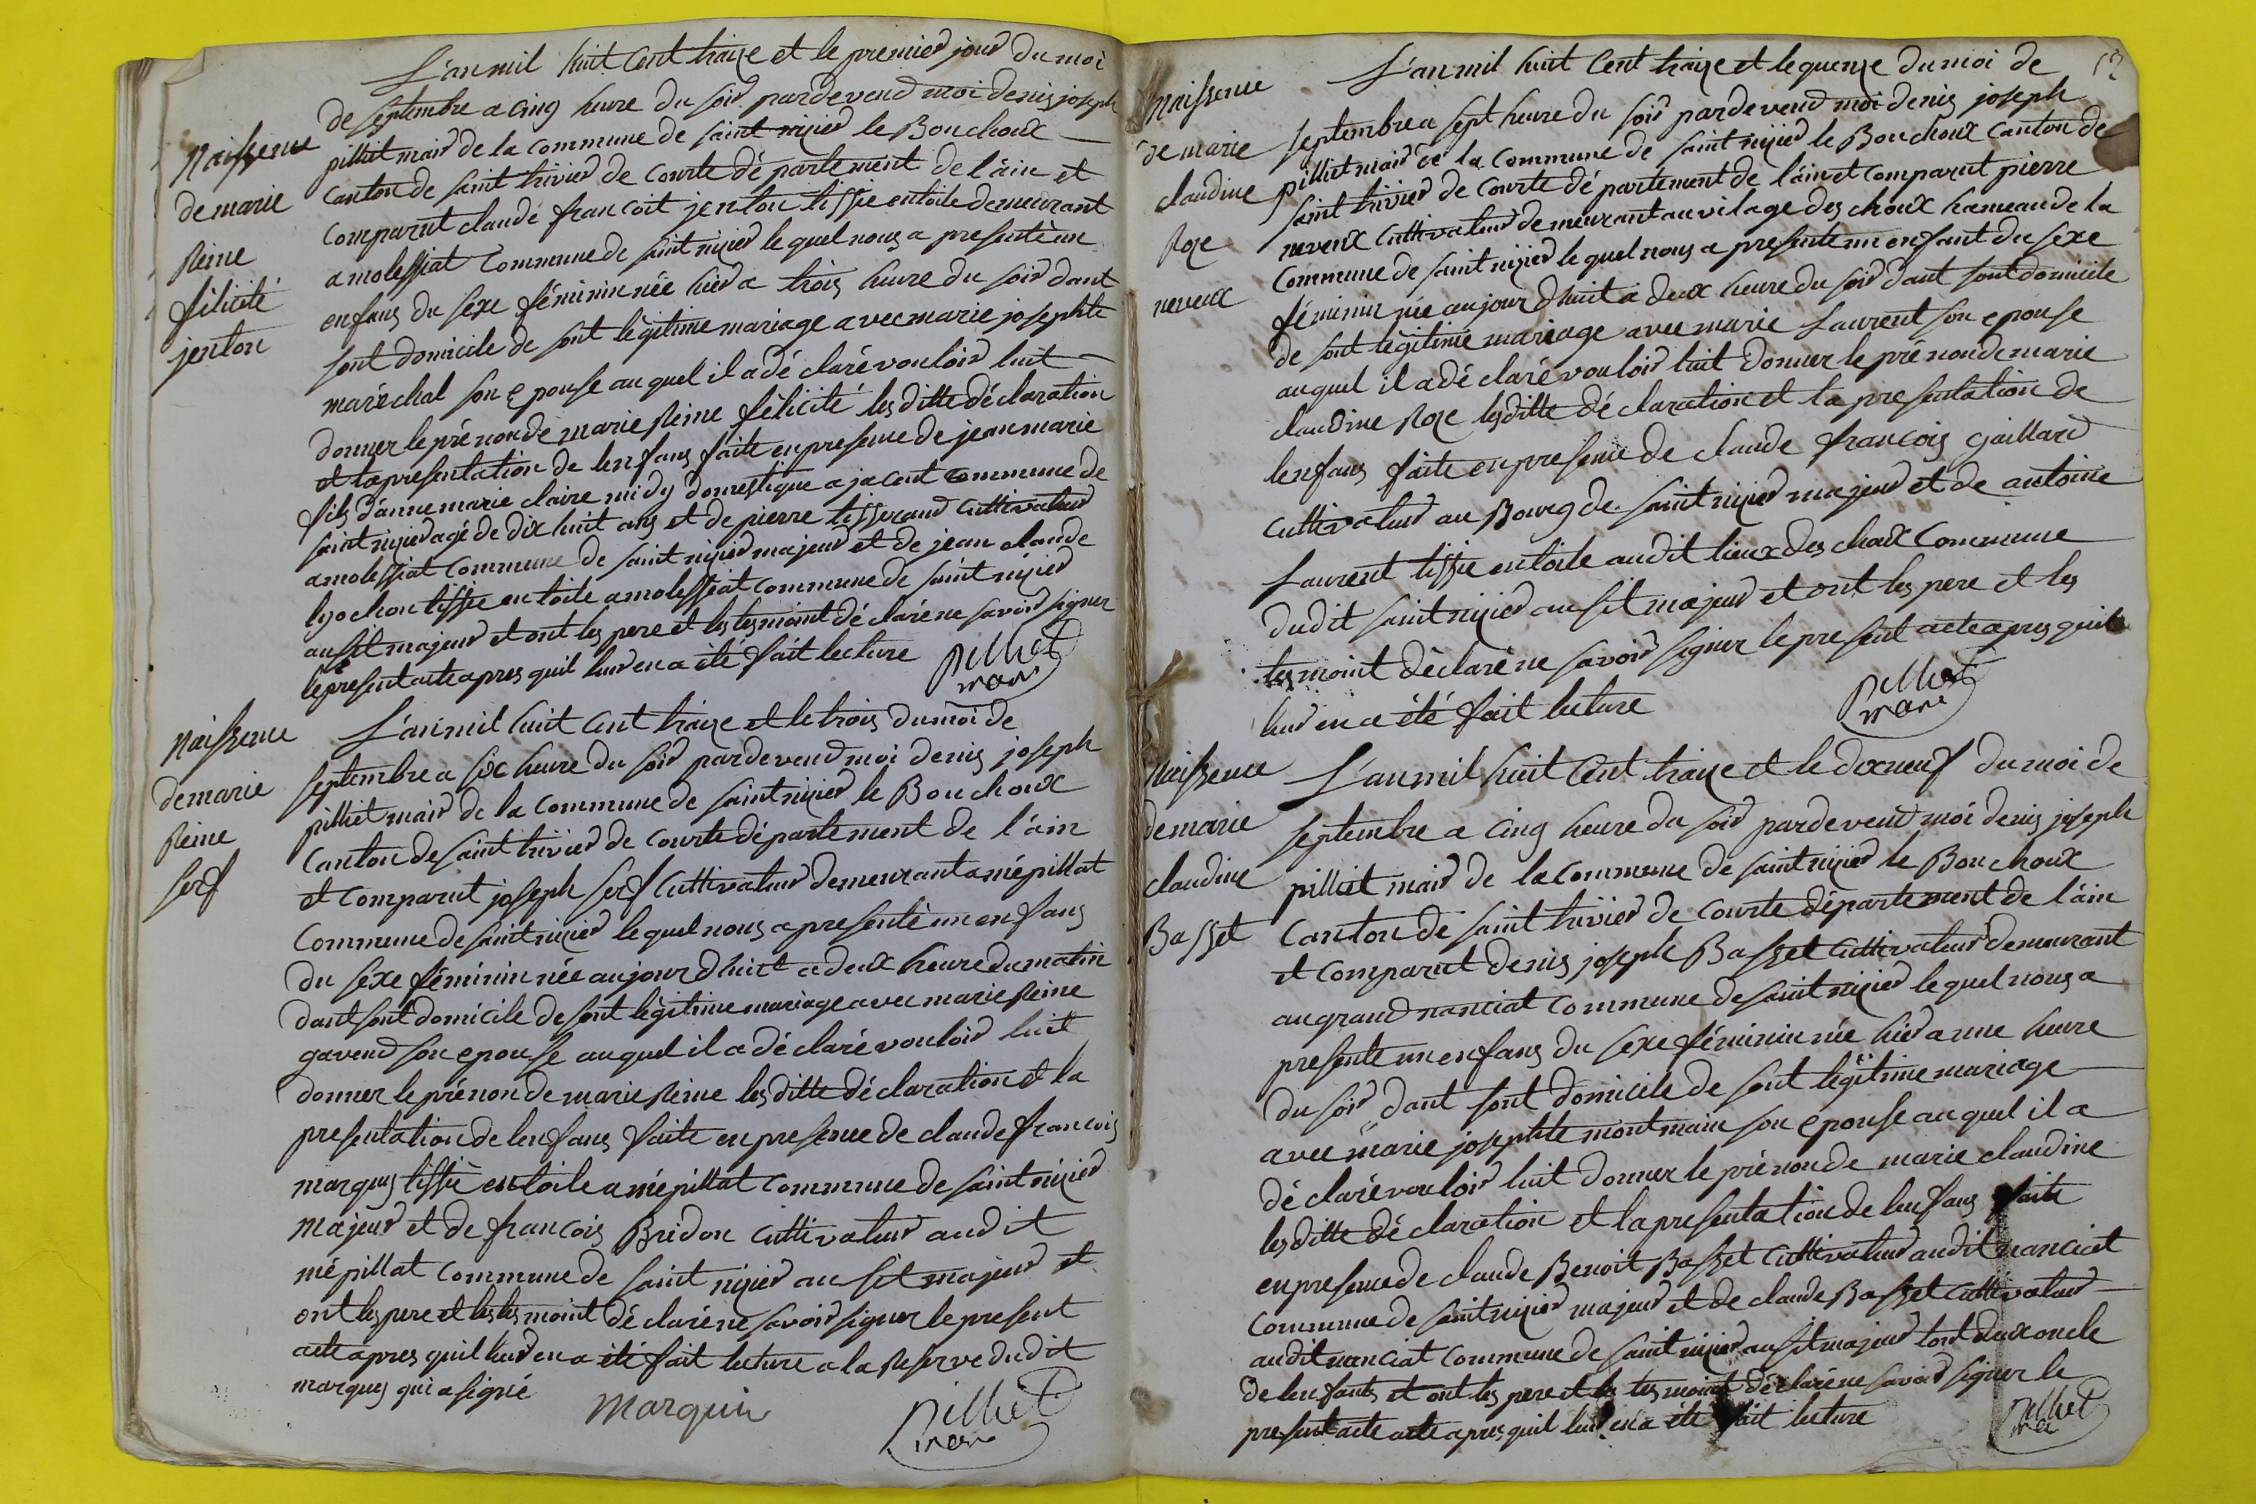 L'an mil huit Cent traize et le premier jour du moi
de septembre a cinq heure du soir pardevend moi denis joseph
pilliet mair de la commune de saint nizier le Bouchoux
canton de saint trivier de courte département de l'áin et
comparut claude francoit jenton tissie en toile demeurant
a molessiat commune de saint nizier le quel nous a presenté un
enfans du sexe féminin née hier a trois heure du soir dant
sont domicile de sont légitime mariage avec marie josephte
maréchal son epouse au quel il a dé claré vouloir luit
donner le prénon de marie Reine félicité les ditte déclaration
et la presentation de lenfans faite en presence de jean marie
fils d'anne marie claire midy domestique a jacont commune de
saint nizier agé de dix huit ans et de pierre tisserand cultivateur
a molessiat commune de saint nizier majeur et de jean claude
bochon tissie en toile a molessiat commune de saint nizier
ausit majeur et ont les pere et les tesmoint dé claré ne savoir signer
le present acte apres quil leur en a été fait lecture
pilliet
mair
Naissence
de marie
Reine
félicité
jenton
L'an mil huit cent traize et le trois du moi de
septembre a six heure du soir pardevend moi denis joseph
pilliet mair de la commune de saint nizier le Bouchoux
canton de saint trivier de courte département de l'áin
et comparut joseph serf cultivateur demeurant a mépillat
commune de saint nizier le quel nous a presenté un enfans
du sexe féminin née aujourd huit a deux heure du matin
dant sont domicile de sont légitime mariage avec marie Reine
gavend son epouse au quel il a dé claré vouloir luit
donner le prénon de marie Reine les ditte déclaration et la
presentation de lenfans faite en presence de claude francois
marquis tissie en toile a mépillat commune de saint nizier
majeur et de francois Bridon cultivateur au dit
mépillat commune de saint nizier au sit majeur et
ont les pere et les tesmoint dé claré ne savoir signer le present
acte apres quil leur en a été fait lecture a la Reserve du dit
marquis qui a signé
Marquis
pilliet
mair
Naissence
de marie
Reine
serf
12
L'an mil huit Cent traize et le quenze du moi de
septembre a sept heure du soir pardevend moi denis joseph
pilliet mair de la commune de saint nizier le Bouchoux canton de
saint trivier de courte dé partement de l'áin et comparut pierre
neveux cultivateur demeurant au vilage des choux hameau de la
commune de saint nizier le quel nous a presenté un enfant du sexe
féminin née aujour d'huit a deux heure du soir dant sont domicile
de sont légitime mariage avec marie Laurent son epouse
au quel il a dé claré vouloir luit donner le prénon de marie
claudine Roze les ditte dé claration et la presentation de
lenfans faite en presence de claude francois Gaillard
cultivateur au Bourg de saint nizier majeur et de antoine
Laurent tissie en toile au dit lieux des choux Commune
du dit saint nizier au sit majeur et ont les pere et les
tesmoint déclaré ne savoir signer le present acte apres quil
leur en a été fait lecture
pilliet
mair
Naissence
de marie
claudine
Roze
neveux
L'an mil huit Cent traize et le dixneuf du moi de
septembre a cinq heure du soir pardevend moi denis joseph
pilliet mair de la commune de saint nizier le Bouchoux
canton de saint trivier de courte département de l'áin
et comparut denis joseph Basset cultivateur demeurant
au grand nanciat commune de saint nizier le quel nous a
presenté un enfans du sexe féminin née hier a une heure
du soir dant sont domicile de sont légitime mariage
avec marie josephte montmain son epouse au quel il a
dé claré vouloir luit donner le prénon de marie claudine
les ditte dé claration et la presentation de lenfans faite
en presence de claude Benoit Basset cultivateur au dit nanciat
commune de saint nizier majeur et de claude Basset cultivateur
au dit nanciat commune de saint nizier au sit majeur tout deux oncle
de lenfants et ont les pere et les tesmoint déclaré ne savoir signer le
present acte acte apres quil leur en a été fait lecture
pilliet
mair
Naissence
de marie
claudine
Basset